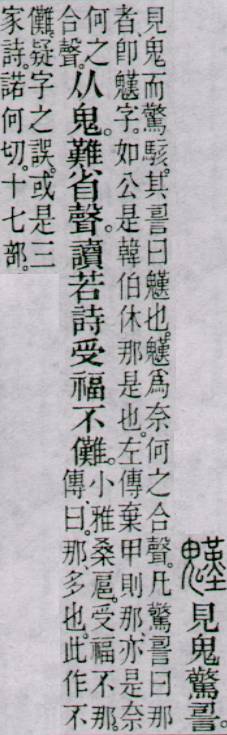 見鬼驚䛐。
見鬼而驚駭。其䛐曰𩴓也。𩴓爲奈何之合聲。凡驚䛐曰那
者、卽𩴓字。如公是韓伯休那是也。左傳棄甲則那、亦是奈
何之
合聲。
从鬼。難省聲。讀若詩受福不儺。
小雅桑扈。受福不那。
傳曰。那、多也。此作不
儺。疑字之誤。或是三
家詩。諾何切。十七部。